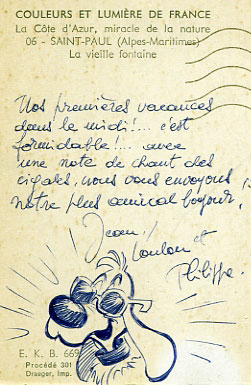 COULEURS ET LUMIÈRE DE FRANCE
La Côte d'Azur, miracle de la nature
06 - SAINT-PAUL (Alpes-Maritimes)
La vieille fontaine
Nos premières vacances
dans le midi!... c'est
formidable!... avec
une note de chant des
cigales, nous vous envoyons
notre plus amical bonjour,
Jean,
Loulou et
Philippe.
E. K. B. 669
Procédé 301
Draeger, Imp.